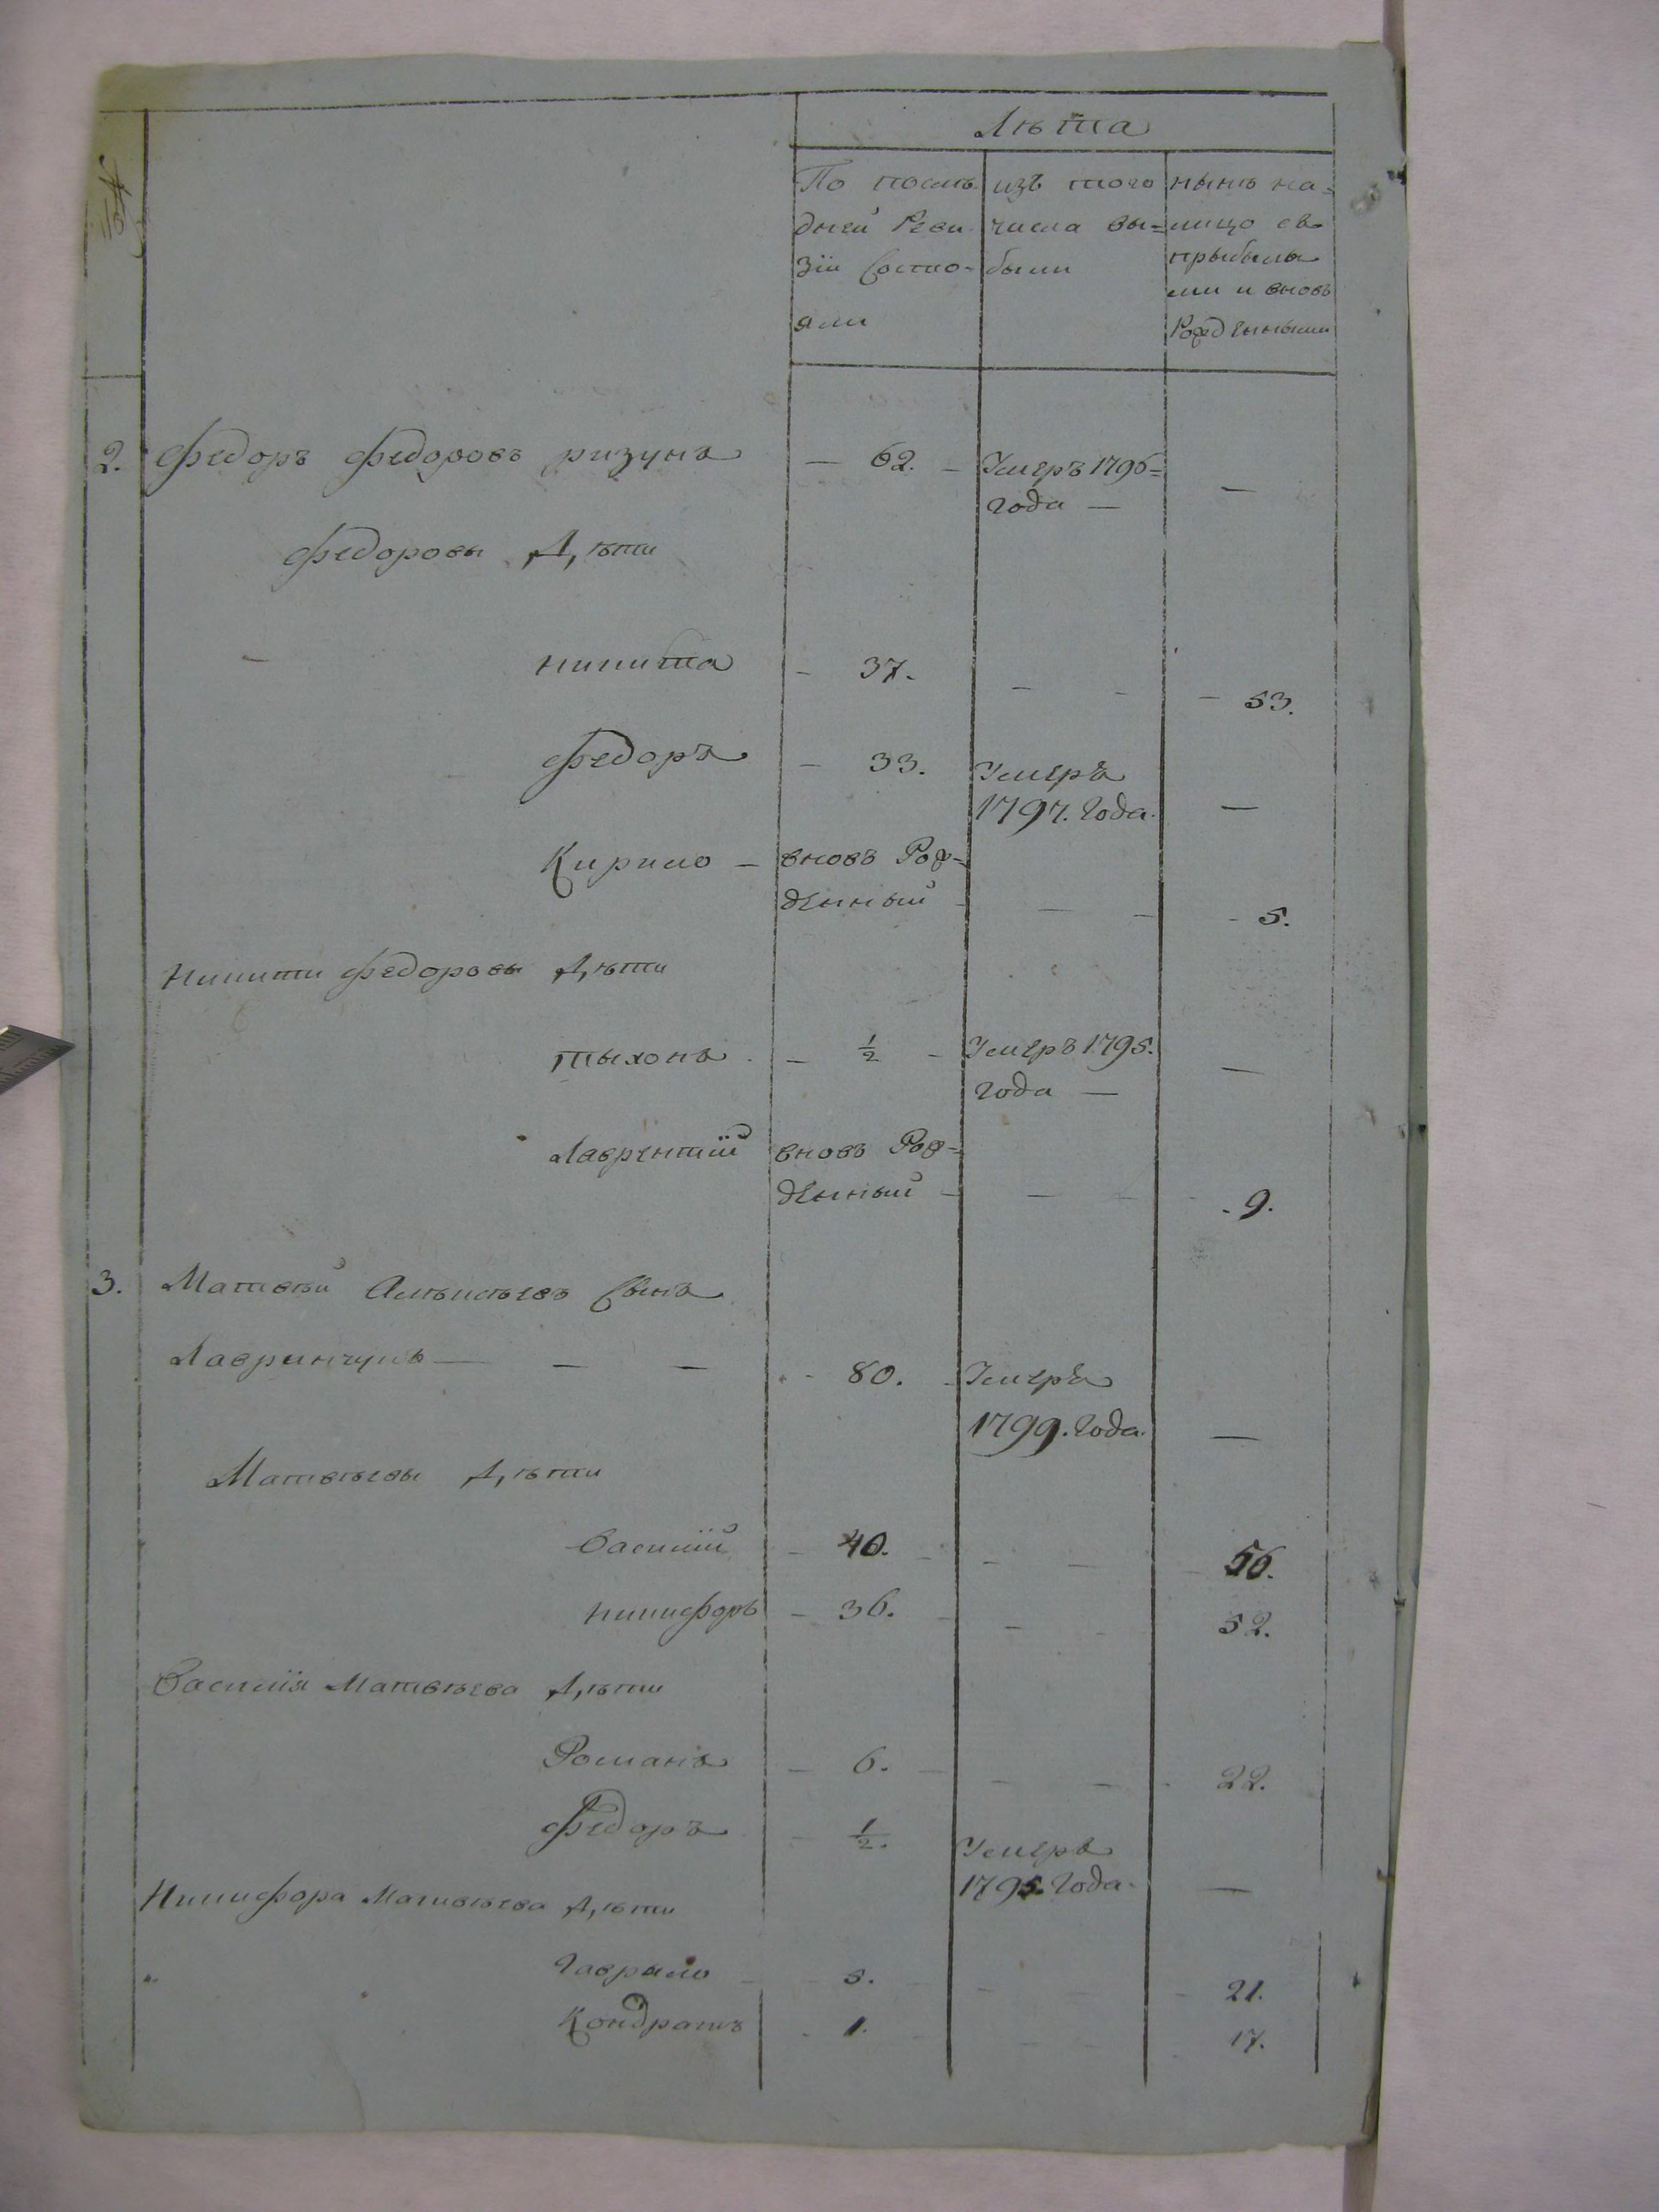 №
Лѣта
По послѣ-
дней Реви-
зіи Состо-
яли
изъ того
числа вы=
были
нынѣ на=
лицо съ
прыбылы
ми и вновь
Рожденными
2. Федоръ Федоровъ ризунъ — 62. — Умеръ 1796=
года — —
Федоровы Дѣти
никита - 37. - - - 53.
Федоръ - 33. Умеръ
1797. Года. —
Кирило — вновь Рож=
денный - — - - 5.
Никити Федоровы Дѣти
тыхонъ - 1/2 - Умеръ 1795.
года — —
Лаврентій вновь Рож=
денный - — - - 9.
3. Матвѣй Сынъ
Лавринчукъ — — — - 80. Умеръ
1799. Года. —
Матвѣевы Дѣти
Василій - 40. - - — - 56.
никифоръ - 36. - - - 52.
Василія Матвѣева Дѣти
Романъ - 6. — - - - 22.
Федоръ - 1/2. Умеръ
1795. Года. —
Никифора Матвѣева Дѣти
Гаврыло - 5. - - - 21.
Кондратъ - 1. - - 17.